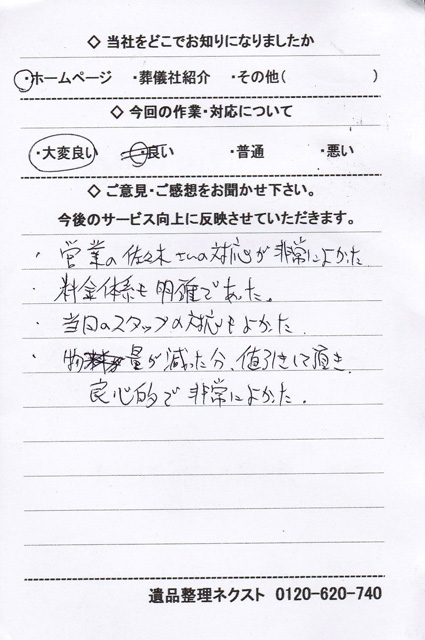 ◇ 当社をどこでお知りになりましたか
・ホームページ ・葬儀社紹介 ・その他( )
◇ 今回の作業・対応について
・大変良い ・良い ・普通 ・悪い
◇ ご意見・ご感想をお聞かせ下さい。
今後のサービス向上に反映させていただきます。
・営業の佐々木さんの対応が非常によかった
・料金体系も明確であった。
・当日のスタッフの対応もよかった
・物量が減った分、値引きして頂き、
良心的で非常によかった。
遺品整理ネクスト 0120-620-740